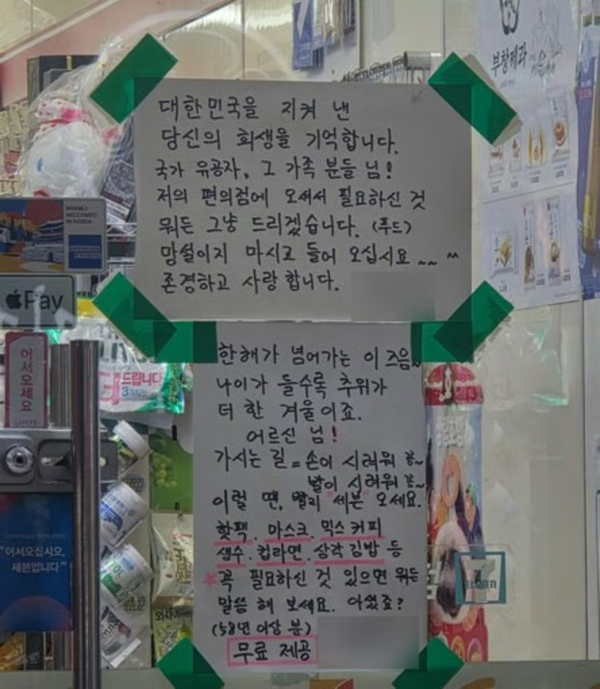 대한민국을 지켜 낸
당신의 희생을 기억합니다.
국가 유공자, 그 가족 분들 님!
저의 편의점에 오셔서 필요하신 것
뭐든 그냥 드리겠습니다. (푸드)
망설이지 마시고 들어 오십시요~~ ^^
존경하고 사랑합니다.
한해가 넘어가는 이 즈음~
나이가 들수록 추위가
더 한 겨울이죠.
어르신 님!
가시는 길 = 손이 시려워 꽁~
발이 시려워 꽁~
이럴 땐, 빨리 세븐 오세요.
핫팩. 마스크. 믹스커피
생수. 컵라면. 삼각김밥 등
꼭 필요하신 것 있으면 뭐든
말씀 해 보세요. 아셨죠?
(58년 이상 분)
무료 제공
부창제과
Pay
어서오세요
드립니다
"어서오십시오,
세븐입니다"